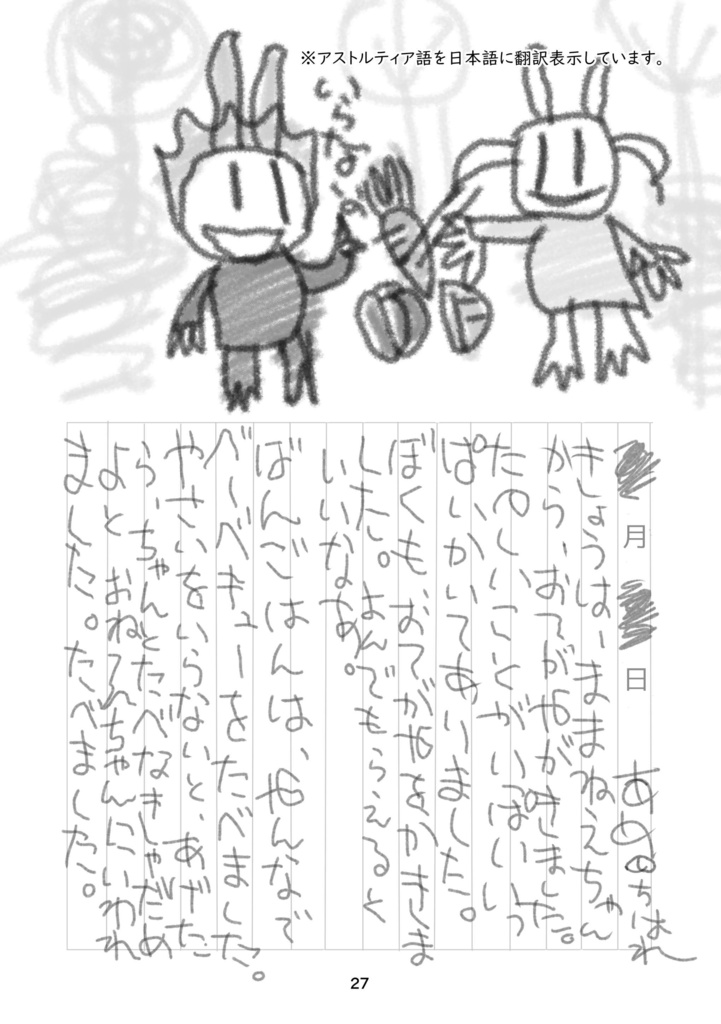 ※アストルティア語を日本語に翻訳表示しています。
いらなーの
月 日 あめのちはれ
きょうは、ままねえちゃん
から、おてがやがきました。
たのしいことがいっぱいいっ
ぱいかいてありました。
ぼくも、おてがやをかきま
した。よんでもらえると
いいなあ。
ばんごはんは、みんなで
べーべキューをたべました。
やさいをいらないと、あげた
ら、ちゃんとたべなきしゃだめ
よと おねえちゃんにいわれ
ました。たべました。
27